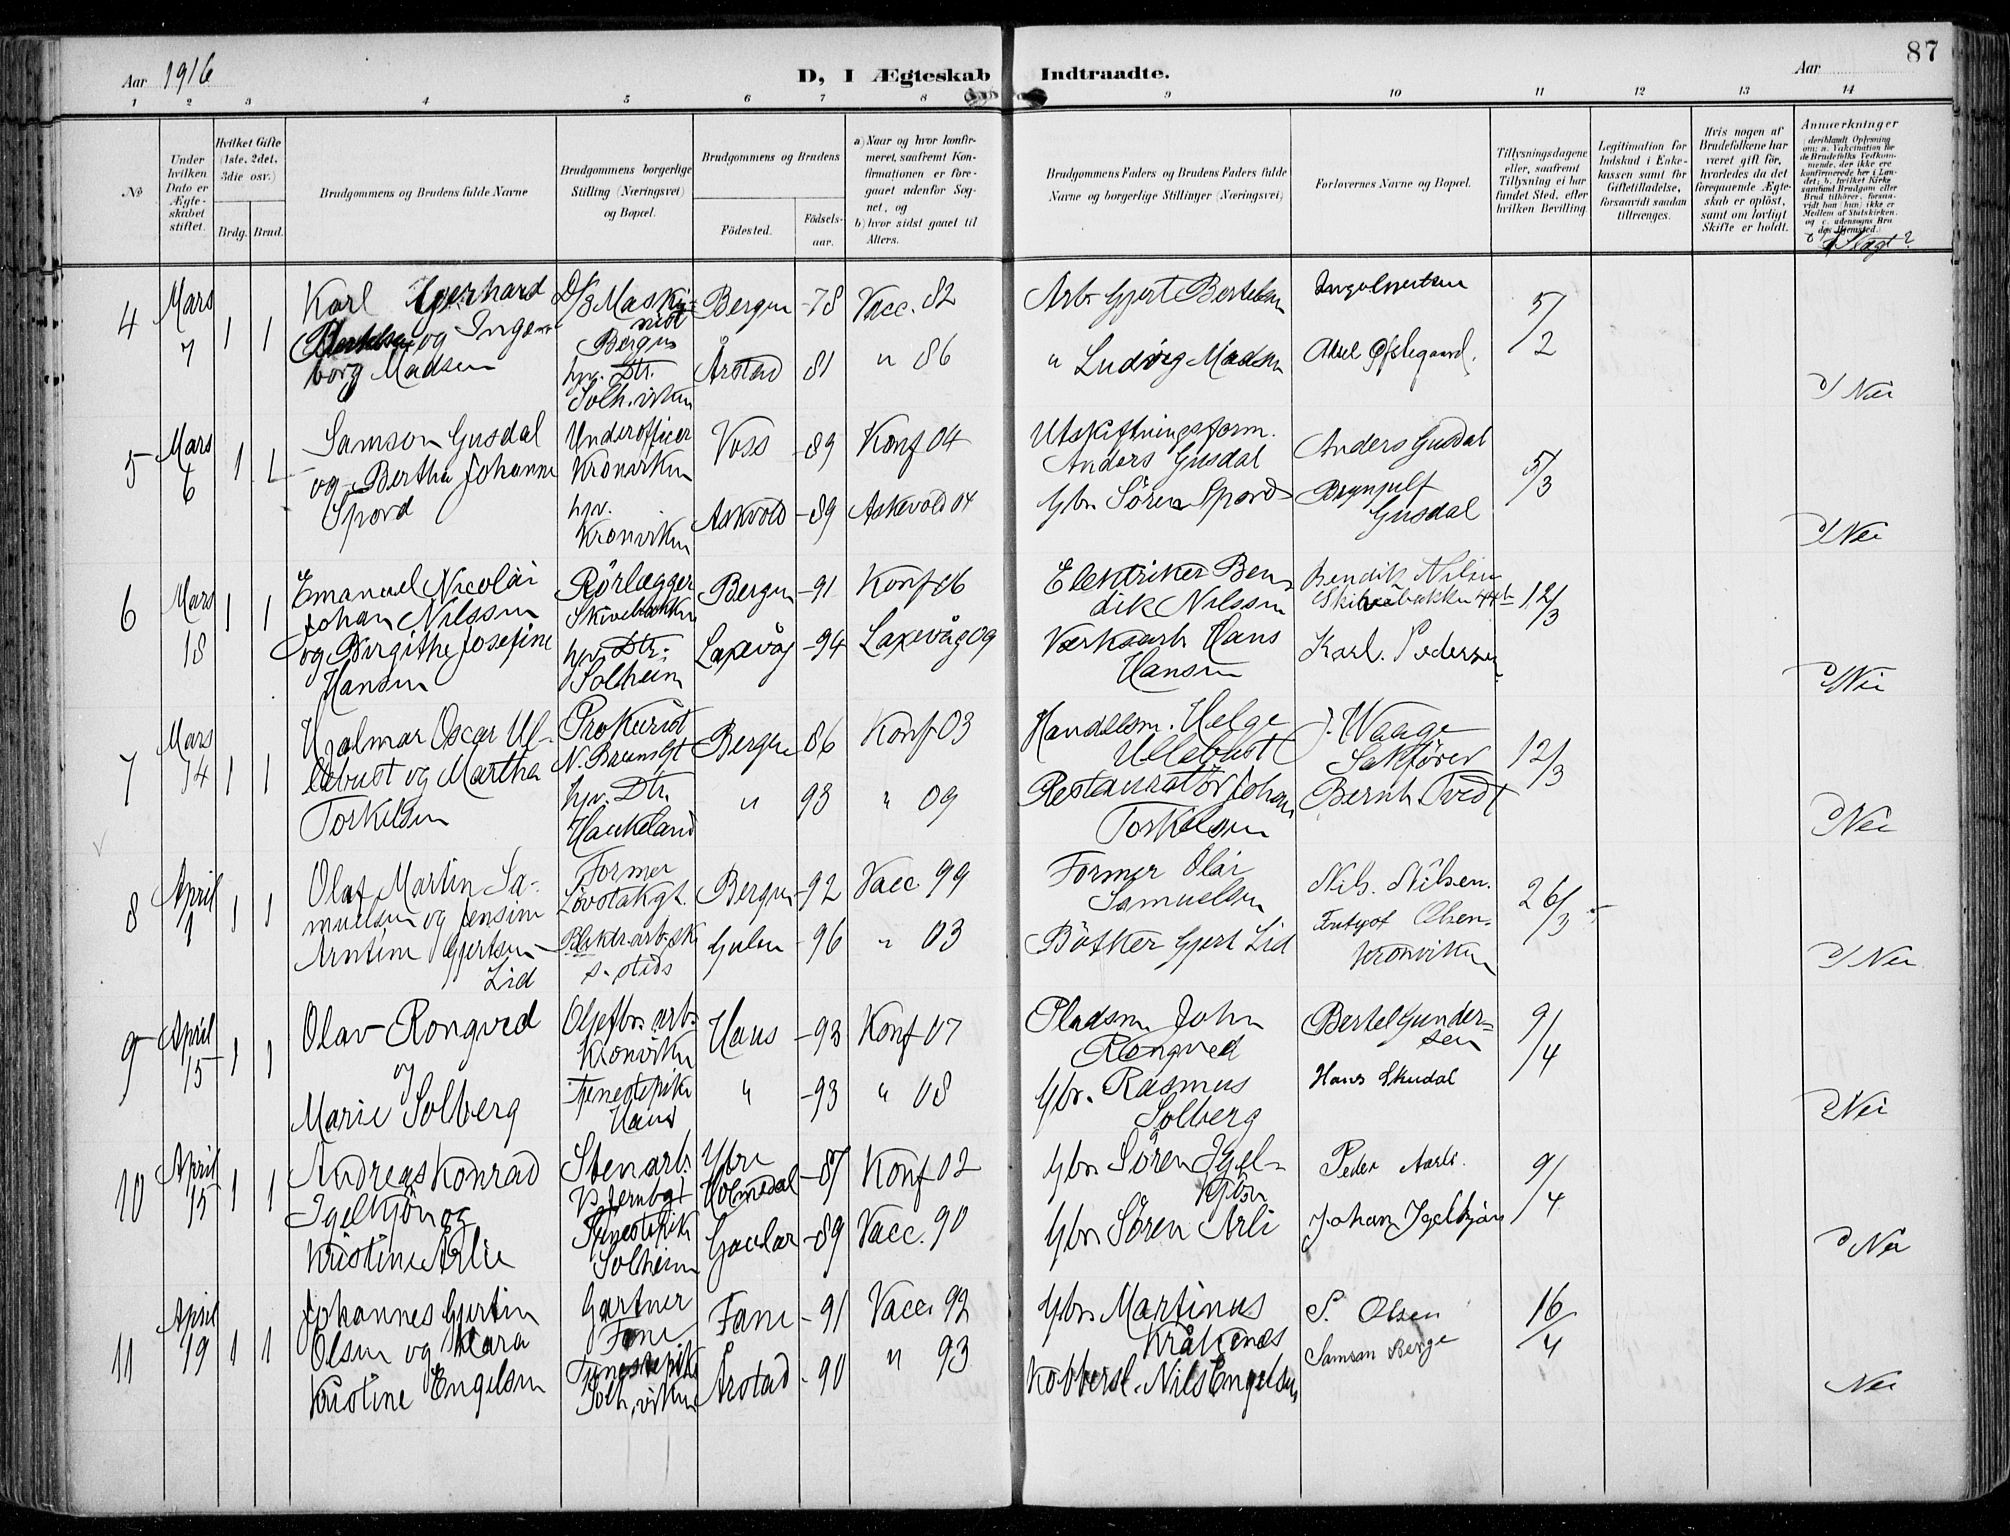 Aar 1916
D, I Ægteskab Indtraadte.
Aar
87
1 2 3 4 5 6 7 8 9 10 11 12 13 14
No
Under hvilken Dato er Ægteskabet stiftet.
Hvilket Gifte (1ste, 2det, 3die osv.)
Brdg. Brud.
Brudgommens og Brudens fulde Navne
Brudgommens borgerlige Stilling (Næringsvei) og Bopæl.
Brudgommens og Brudens
Fødested.
Fødsels-aar.
a) Naar og hvor konfirmeret, saafremt Konfirmationen er foregaaet udenfor Sognet, og
b) hvor sidst gaaet til Alters.
Brudgommens Faders og Brudens Faders fulde Navne og borgerlige Stillinger (Næringsvei)
Forlovernes Navne og Bopæl.
Tillysningsdagene eller, saafremt Tillysning ei har fundet Sted, efter hvilken Bevilling.
Legitimation for Indskud i Enkekassen samt for Giftetilladelse, forsaavidt saadan tiltrænges.
Hvis nogen af Brudefolkene har været gift før, hvorledes da det foregaaende Ægteskab er opløst, samt om lovligt Skifte er holdt.
Anmærkninger
4 Mars 7 1 1
Karl Gerhard
og Inge
borg Madsen
Maski
nist
Bergen
hjv. Dtr.
Solh.viken
Bergen -78 Vacc. 82
Årstad 81 " 86
Arb. Gjert Bertelsen
" Ludvig Madsen
Aksel
5/2
Nei
5 Mars 6 1 1
Samson Gusdal
og Bertha Johanne
Spord
Underofficer
Kronviken
hjv.
Kronviken
Voss -89 Konf 04
Askvold -89 Askevold 04
Utskiftningsform.
Anders Gusdal
Gbr. Sören Spord
Anders Gusdal
Brynjulf
Gusdal
5/3
Nei
6 Mars 18 1 1
Emanuel Nicolai
Johan Nilssen
og Birgithe Josefine
Hansen
Rörlægger
Skivebakken
hjv. Dtr.
Solheim
Bergen -91 Konf 06
Laxevåg -94 Laxevåg 09
Elektriker Ben
dik Nilssen
Værksarb. Hans
Hansen
Bendik Nilsen
Karl. Pedersen
12/3
Nei
7 Mars 14 1 1
Hjalmar Oscar Ul-
lebust og Martha
Torkelsen
Prokurist
hjv. Dtr.
Haukeland
Bergen 86 Konf 03
" 93 " 09
Handelsm. Helge
Ullebust
Restauratör Johan
Torkelsen
J. Waage
Sakförer
Bernh. Tvedt
12/3
Nei
8 April 1 1 1
Olaf Martin Sa-
muelsen og Jensine
Arntine Gjertsen
Lid
Former
Bergen -92 Vacc 99
Gulen -96 " 03
Former Olai
Samuelsen
Bötker Gjert Lid
Nils. Nilsen.
Olsen
Kronviken
26/3
Nei
9 April 15 1 1
Olav Rongved
og
Marie Solberg
Oljefbr. arb.
Kronviken
Tjenestepike
Haus
Haus -93 Konf 07
" -93 " 08
Pladsm. John
Rongved
Gbr. Rasmus
Solberg
Bertel Gunder-
sen
Hans Skudal
9/4
Nei
10 April 15 1 1
Andreas Konrad
Igelkjön og
Kristine Arlie
Stenarb.
Tjenestepike
Solheim
Ytre
Holmedal -87 Konf 02
Gaular -89 Vacc. 90
Gbr. Sören Igel-
kjön
Gbr. Sören Arli
Peder Aarli.
Johan Igelkjön
9/4
Nei
11 April 19 1 1
Johannes Gjertin
Olsen og Klara
Kristine Engelsen
Gartner
Fane
Tjenestepike
Solh.viken
Fane -91 Vacc. 92
Årstad -90 " 93
Gbr. Martinus
Kråkenes
Kobbersl. Nils Engelsen
S. Olsen
Samson Berge
16/4
Nei